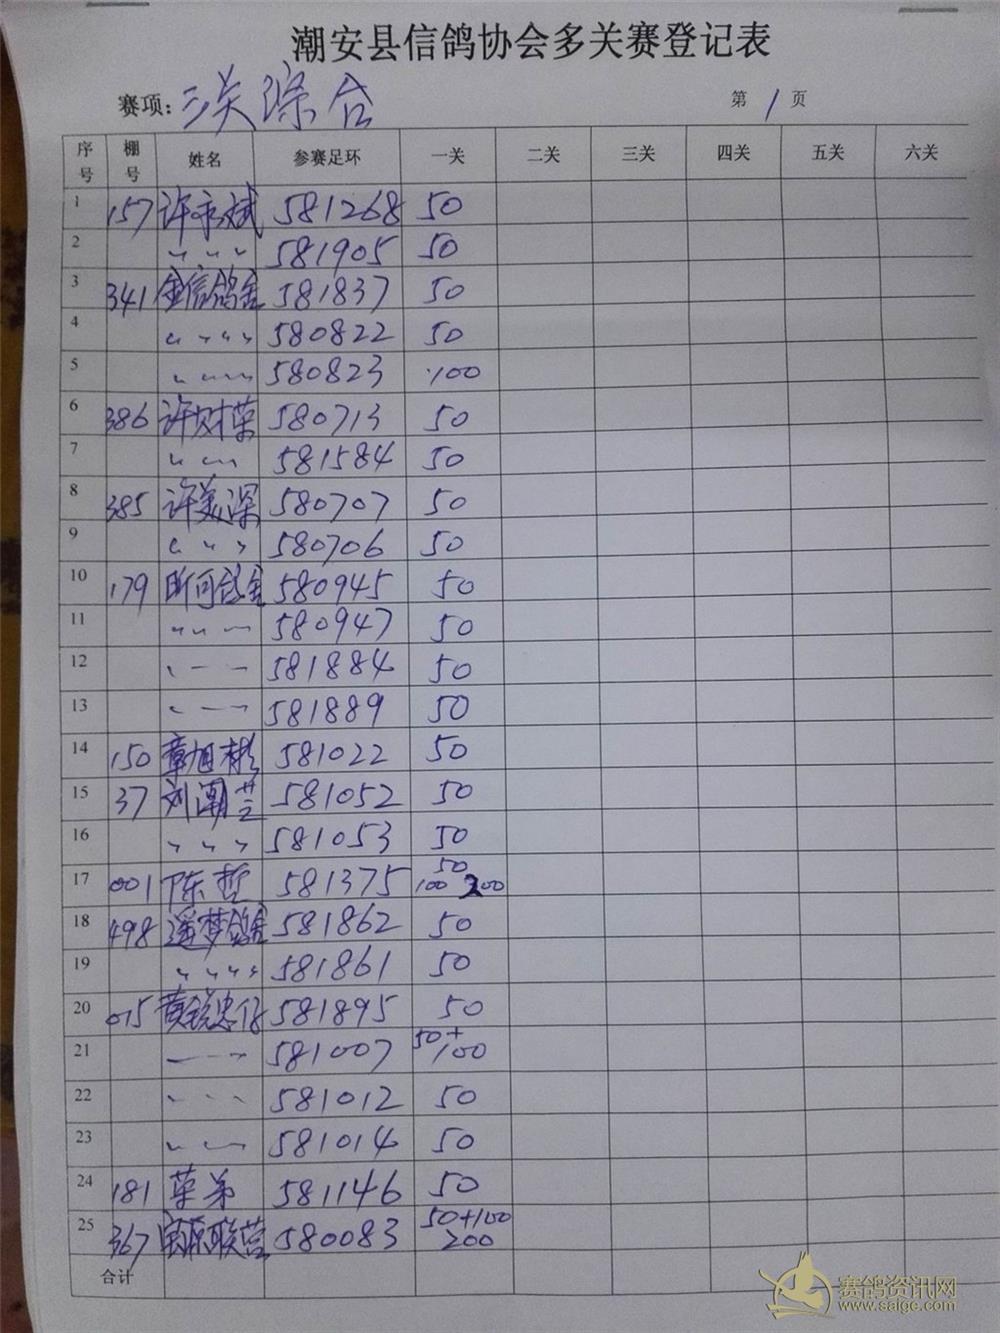 潮安县信鸽协会多关赛登记表
赛项: 三关综合 第 1 页
序号 棚号 姓名 参赛足环 一关 二关 三关 四关 五关 六关
1 157 许永斌 581268 50
2 〃 〃 〃 581905 50
3 341 金信鸽舍 581837 50
4 〃 〃 〃 〃 580822 50
5 〃 〃 〃 〃 580823 100
6 386 许财荣 580713 50
7 〃 〃 〃 581584 50
8 385 许美深 580707 50
9 〃 〃 〃 580706 50
10 179 昕何鸽舍 580945 50
11 〃 〃 〃 580947 50
12 〃 〃 〃 581884 50
13 〃 〃 〃 581889 50
14 150 章旭彬 581022 50
15 37 刘潮芝 581052 50
16 〃 〃 〃 581053 50
17 001 陈哲 581375 50 100 200
18 498 遥梦鸽舍 581862 50
19 〃 〃 〃 〃 581861 50
20 015 黄锐忠仔 581895 50
21 〃 〃 581007 50+100
22 〃 〃 〃 581012 50
23 〃 〃 581014 50
24 181 荣弟 581146 50
25 367 联营 580083 50+100 200
合计
赛鸽资讯网
www.saigc.com